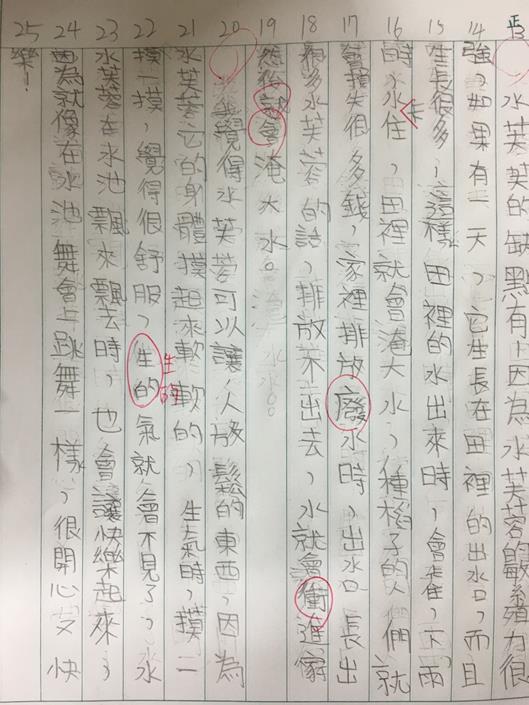 13 水芙芙的缺點有:因為水芙蓉的繁殖力很
14 強,如果有一天,它生長在田裡的出水口,而且
15 生長很多,這樣田裡的水出來時,會堵,下雨
16 時水住,田裡就會淹大水,種稻子的人們就 卡
17 會損失很多錢,家裡排放廢水時,出水口長出
18 很多水芙蓉的話,排放不出去,水就會衝進家
19 然後就會淹大水。
20 我覺得水芙蓉可以讓人放鬆的東西,因為
21 水芙蓉它的身體摸起來軟軟的,生氣時,摸一
22 摸,覺得很舒服,生的氣就會不見了,水 生的
23 水芙蓉在水池飄來飄去時,也會讓快樂起來,
24 因為就像在水池舞會上跳舞一樣,很開心又快
25 樂!